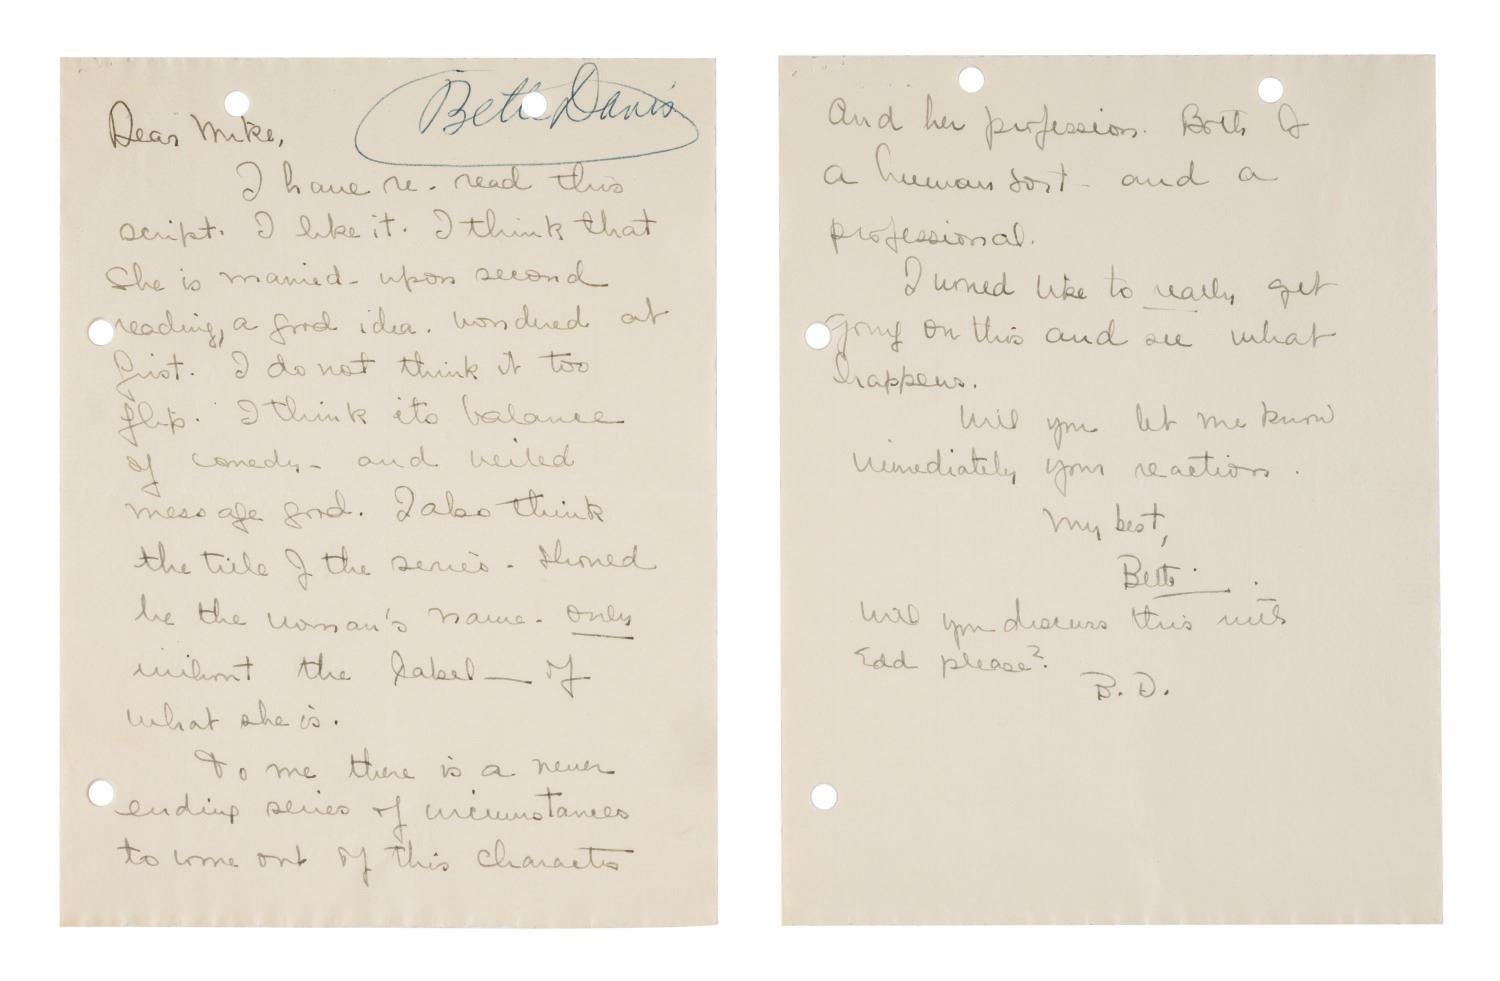 Bette Davis
Dear Mike,
I have re-read this
script. I like it. I think that
she is married - upon second
reading, a good idea. Wondered at
first. I do not think it too
flip. I think its balance
of comedy - and veiled
message good. I also think
the title of the series - should
be the woman's name - only
without the label — of
what she is.
To me there is a never
ending series of circumstances
to come out of this character
And her profession. Both of
a human sort - and a
professional.
I would like to really get
going on this and see what
happens.
Will you let me know
immediately your reaction.
My best,
Bette
Will you discuss this with
Edd please?
B. D.